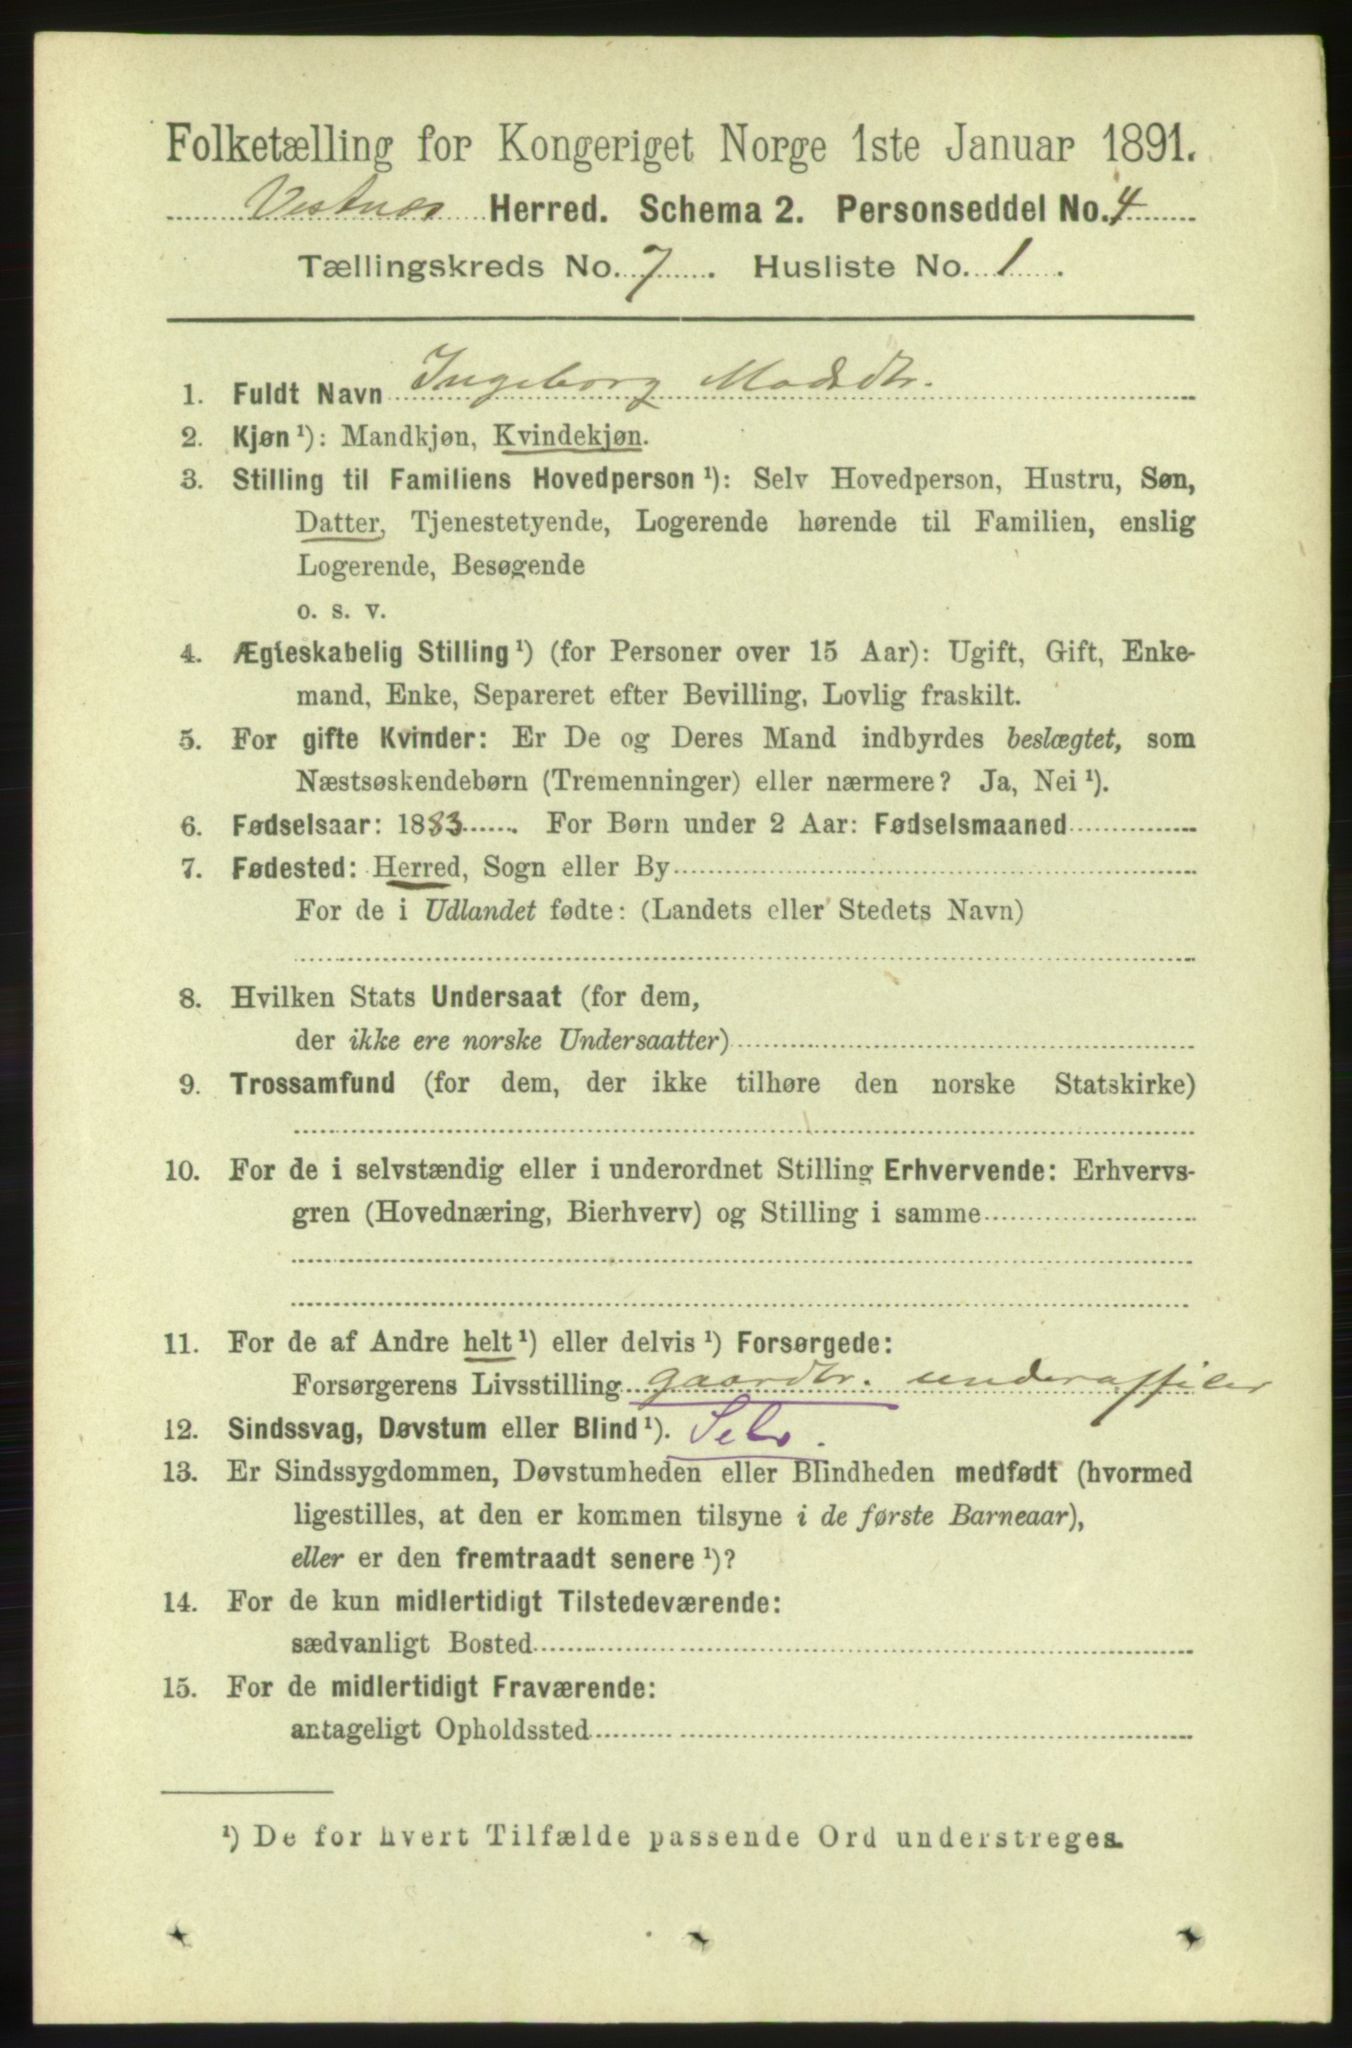 Folketælling for Kongeriget Norge 1ste Januar 1891.
Vestnes Herred. Schema 2. Personseddel No. 4
Tællingskreds No. 7. Husliste No. 1.
1. Fuldt Navn Ingeborg Madsdtr.
2. Kjøn ¹): Mandkjøn, Kvindekjøn.
3. Stilling til Familiens Hovedperson ¹): Selv Hovedperson, Hustru, Søn,
Datter, Tjenestetyende, Logerende hørende til Familien, enslig
Logerende, Besøgende
o. s. v.
4. Ægteskabelig Stilling ¹) (for Personer over 15 Aar): Ugift, Gift, Enke-
mand, Enke, Separeret efter Bevilling, Lovlig fraskilt.
5. For gifte Kvinder: Er De og Deres Mand indbyrdes beslægtet, som
Næstsøskendebørn (Tremenninger) eller nærmere? Ja, Nei ¹).
6. Fødselsaar: 1883. For Børn under 2 Aar: Fødselsmaaned
7. Fødested: Herred, Sogn eller By
For de i Udlandet fødte: (Landets eller Stedets Navn)
8. Hvilken Stats Undersaat (for dem,
der ikke ere norske Undersaatter)
9. Trossamfund (for dem, der ikke tilhøre den norske Statskirke)
10. For de i selvstændig eller i underordnet Stilling Erhvervende: Erhvervs-
gren (Hovednæring, Bierhverv) og Stilling i samme
11. For de af Andre helt ¹) eller delvis ¹) Forsørgede:
Forsørgerens Livsstilling gaardbr. underoffiler
12. Sindssvag, Døvstum eller Blind ¹). Selv.
13. Er Sindssygdommen, Døvstumheden eller Blindheden medfødt (hvormed
ligestilles, at den er kommen tilsyne i de første Barneaar),
eller er den fremtraadt senere ¹)?
14. For de kun midlertidigt Tilstedeværende:
sædvanligt Bosted
15. For de midlertidigt Fraværende:
antageligt Opholdssted
¹) De for hvert Tilfælde passende Ord understreges.